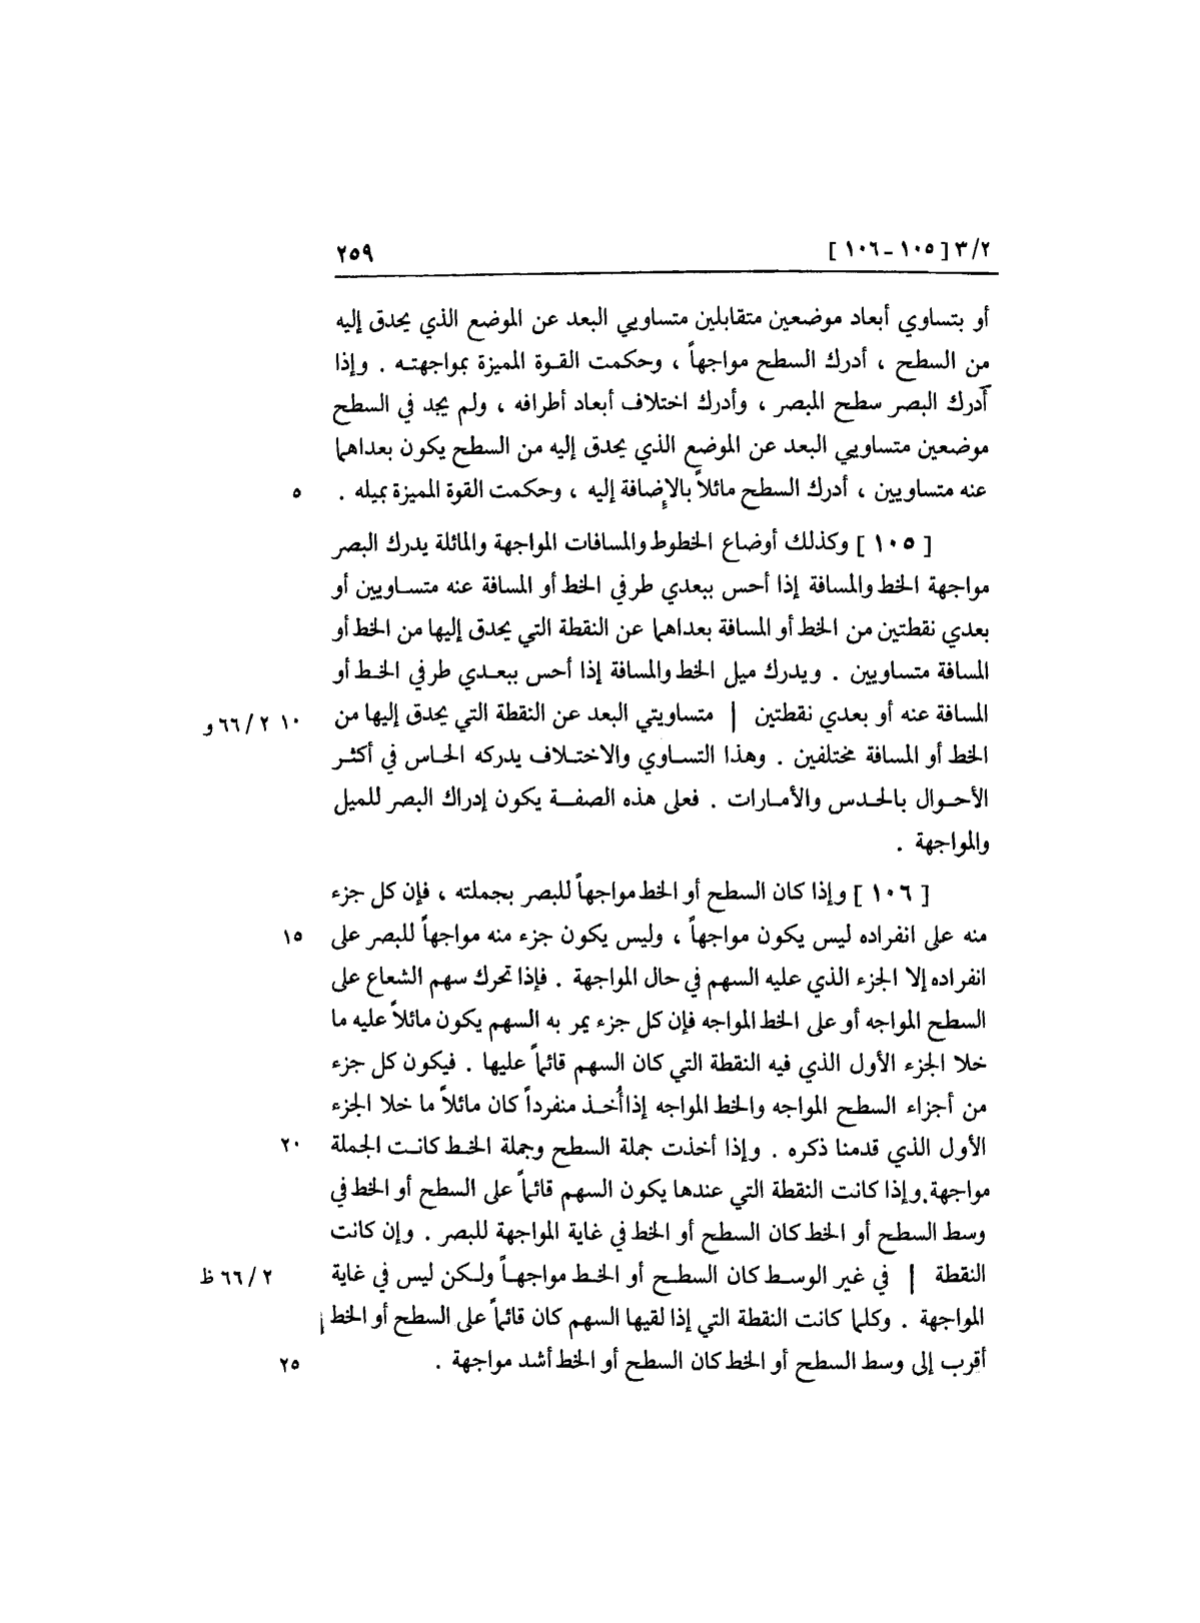 ٣/٢ [ ١٠٥ - ١٠٦ ] ٢٥٩
أو بتساوي أبعاد موضعين متقابلين متساويي البعد عن الموضع الذي يحدق إليه
من السطح ، أدرك السطح مواجهاً ، وحكمت القـوة المميزة بمواجهتـه . وإذا
أدرك البصر سطح المبصر ، وأدرك اختلاف أبعاد أطرافه ، ولم يجد في السطح
موضعين متساويي البعد عن الموضع الذي يحدق إليه من السطح يكون بعداهما
عنه متساويين ، أدرك السطح مائلاً بالإضافة إليه ، وحكمت القوة المميزة بميله . ٥
[ ١٠٥ ] وكذلك أوضاع الخطوط والمسافات المواجهة والمائلة يدرك البصر
مواجهة الخط والمسافة إذا أحس ببعدي طرفي الخط أو المسافة عنه متسـاويين أو
بعدي نقطتين من الخط أو المسافة بعداهما عن النقطة التي يحدق إليها من الخط أو
المسافة متساويين . ويدرك ميل الخط والمسافة إذا أحس ببعـدي طرفي الخـط أو
المسافة عنه أو بعدي نقطتين | متساويتي البعد عن النقطة التي يحدق إليها من ١٠ ٢/ ٦٦ و
الخط أو المسافة مختلفين . وهذا التسـاوي والاختـلاف يدركه الحـاس في أكثـر
الأحـوال بالحـدس والأمـارات . فعلى هذه الصفـة يكون إدراك البصر للميل
والمواجهة .
[ ١٠٦ ] وإذا كان السطح أو الخط مواجهاً للبصر بجملته ، فإن كل جزء
منه على انفراده ليس يكون مواجهاً ، وليس يكون جزء منه مواجهاً للبصر على ١٥
انفراده إلا الجزء الذي عليه السهم في حال المواجهة . فإذا تحرك سهم الشعاع على
السطح المواجه أو على الخط المواجه فإن كل جزء يمر به السهم يكون مائلاً عليه ما
خلا الجزء الأول الذي فيه النقطة التي كان السهم قائماً عليها . فيكون كل جزء
من أجزاء السطح المواجه والخط المواجه إذا أُخـذ منفرداً كان مائلاً ما خلا الجزء
الأول الذي قدمنا ذكره . وإذا أخذت جملة السطح وجملة الخـط كانـت الجملة ٢٠
مواجهة.وإذا كانت النقطة التي عندها يكون السهم قائماً على السطح أو الخط في
وسط السطح أو الخط كان السطح أو الخط في غاية المواجهة للبصر . وإن كانت
النقطة | في غير الوسـط كان السطـح أو الخـط مواجهـاً ولـكن ليس في غاية ٢/ ٦٦ ظ
المواجهة . وكلما كانت النقطة التي إذا لقيها السهم كان قائماً على السطح أو الخط
أقرب إلى وسط السطح أو الخط كان السطح أو الخط أشد مواجهة . ٢٥